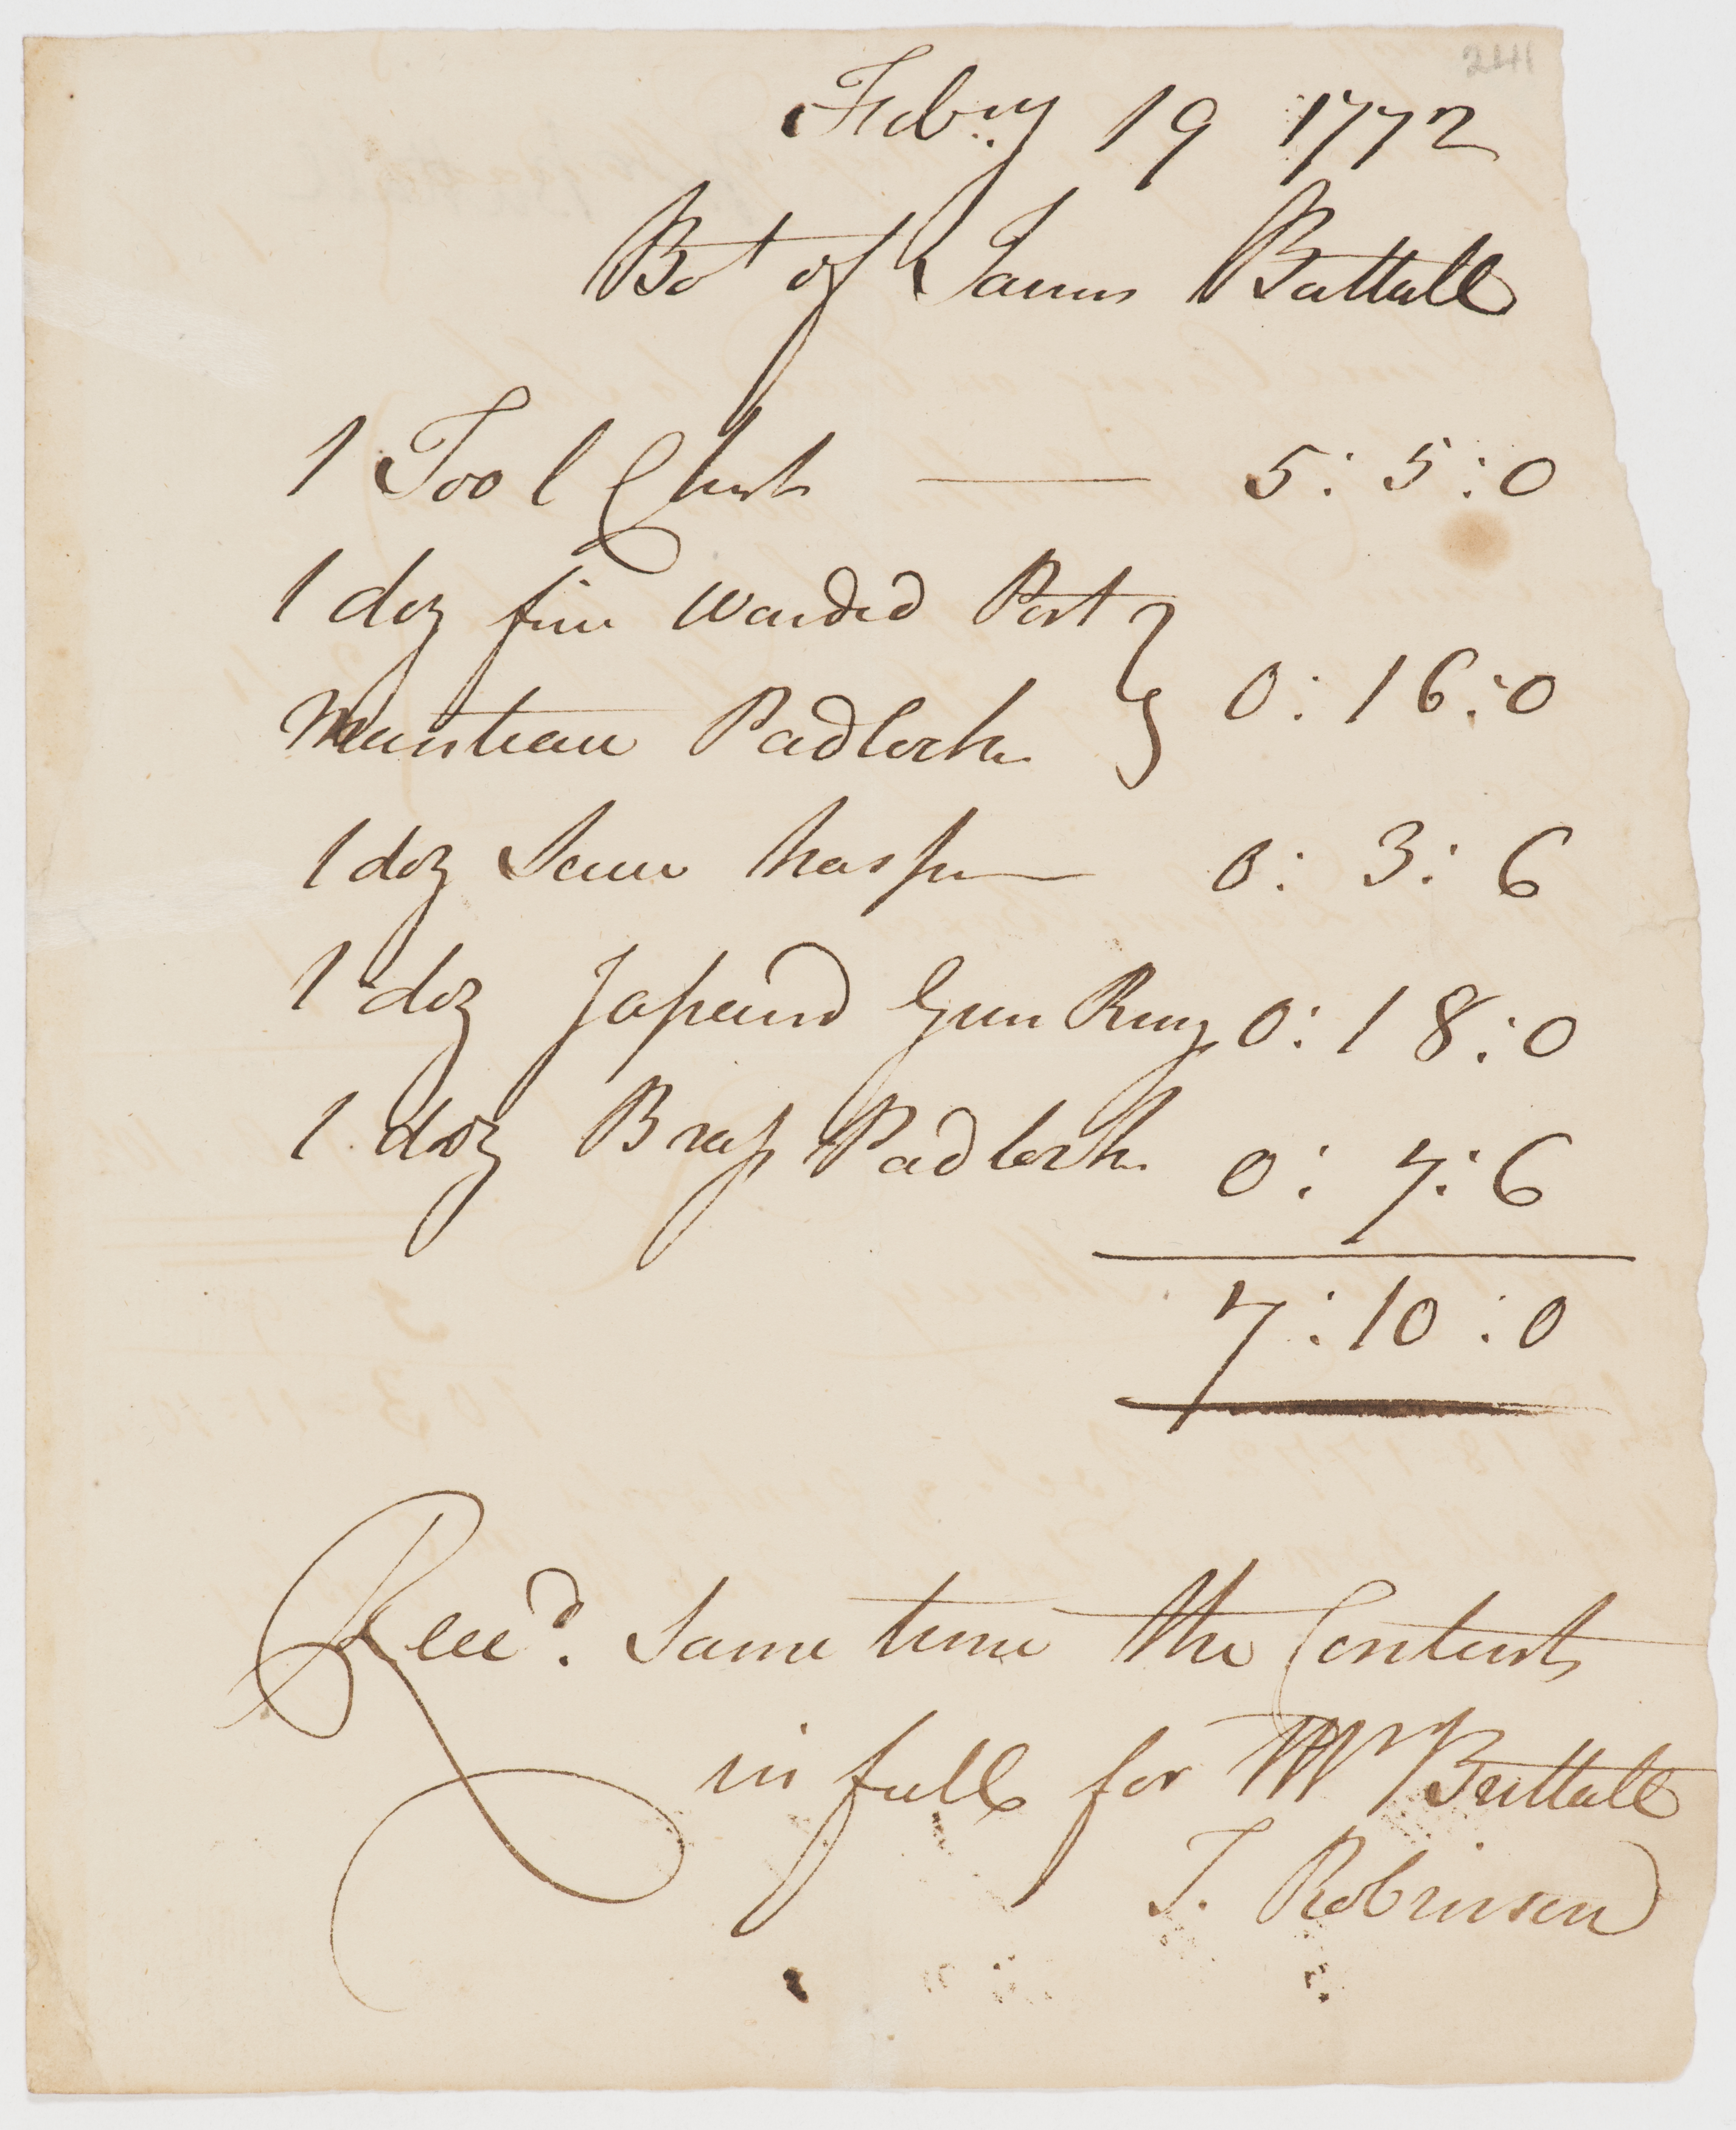 241
Febry. 19 1772
Bot of James Buttall
1 Tool Chest — 5 : 5 : 0
1 doz fine warded Port
Manteau Padlocks } 0 : 16 : 0
1 doz Scew hasps — 0 : 3 : 6
1 doz Japaind Gun Ring 0 : 18 : 0
1 doz Brass Padlocks 0 : 7 : 6
7 : 10 : 0
Rece'd. same time the Contents
in full for Mr Buttall
T. Robinson